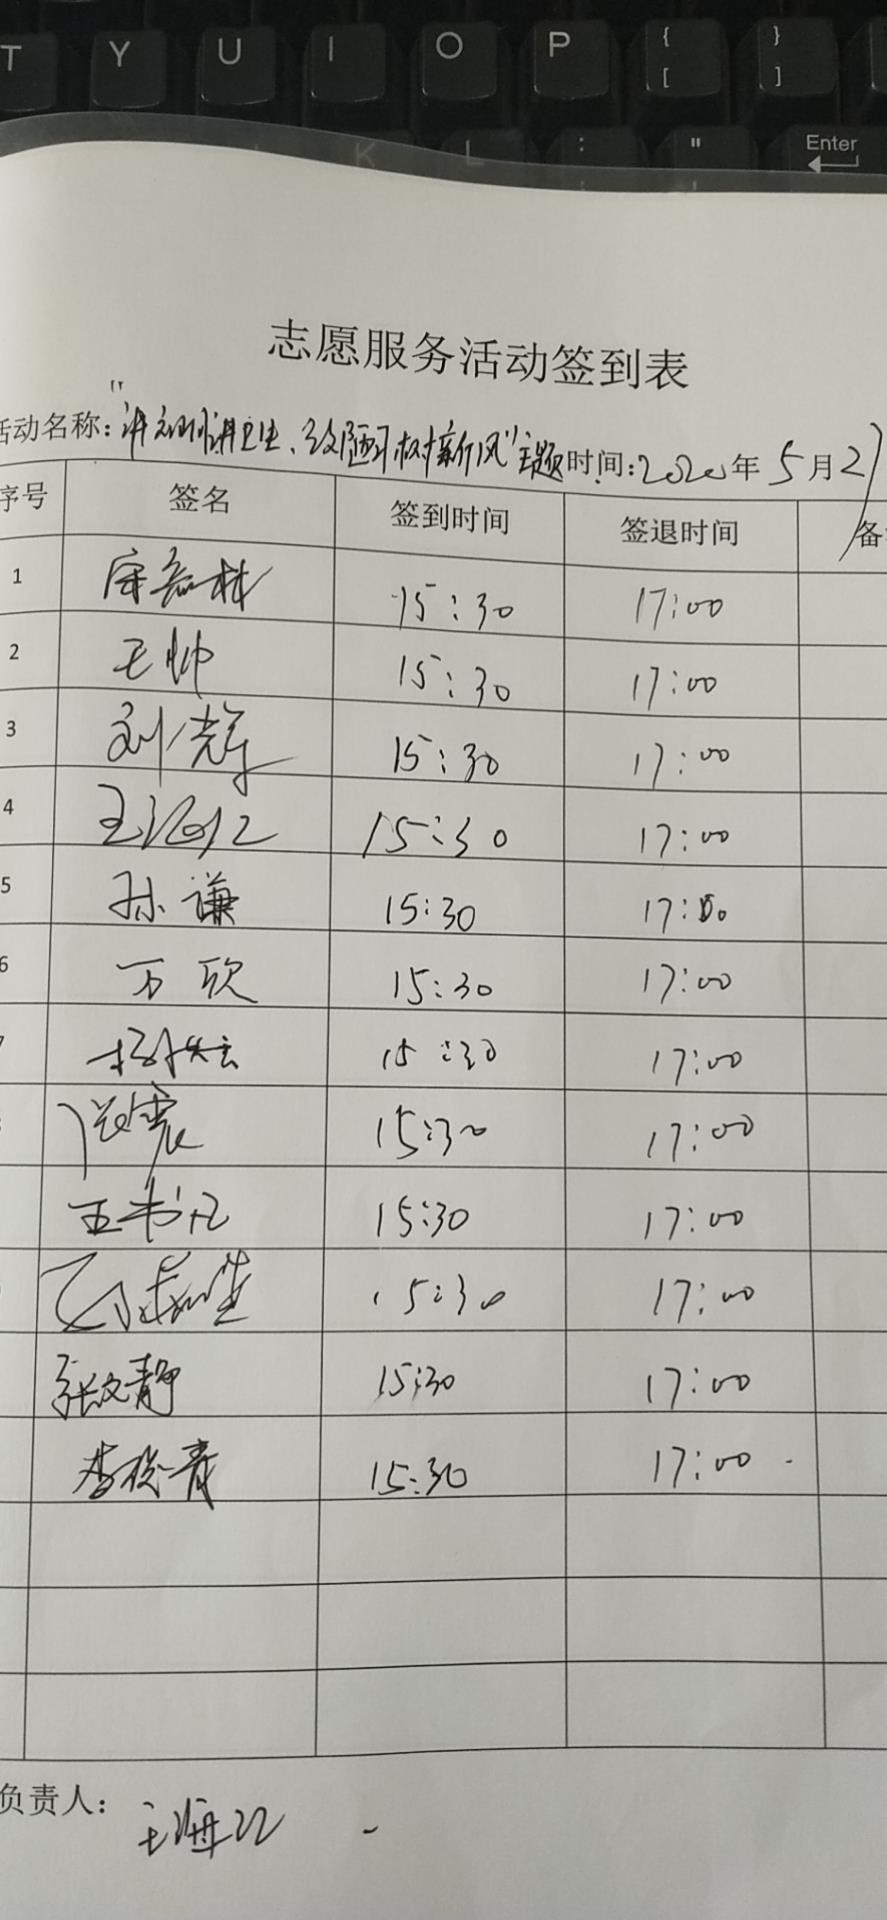 T Y U I O P { [ } ]
K L : " Enter
志愿服务活动签到表
活动名称："讲文明讲卫生、改陋习树新风"主题 时间：2020年5月27
序号 签名 签到时间 签退时间 备
1 15:30 17:00
2 王帅 15:30 17:00
3 刘光辉 15:30 17:00
4 王海江 15:30 17:00
5 孙谦 15:30 17:00
6 万欣 15:30 17:00
7 15:30 17:00
15:30 17:00
王书凡 15:30 17:00
15:30 17:00
张文静 15:30 17:00
李俊青 15:30 17:00
负责人：王海江